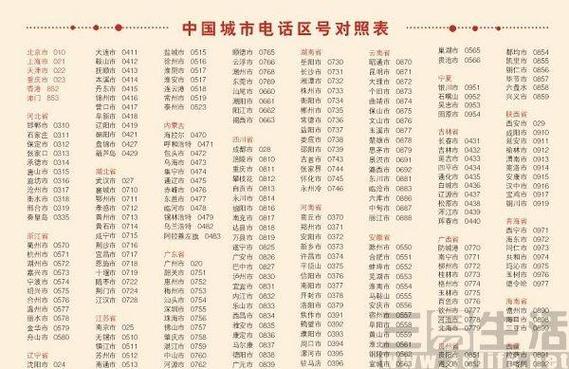 中国城市电话区号对照表
北京市 010
上海市 021
天津市 022
重庆市 023
香港 852
澳门 853
河北省
邯郸市 0310
石家庄 0311
保定市 0312
张家口 0313
承德市 0314
唐山市 0315
廊坊市 0316
沧州市 0317
衡水市 0318
邢台市 0319
秦皇岛 0335
浙江省
衢州市 0570
杭州市 0571
湖州市 0572
嘉兴市 0573
宁波市 0574
绍兴市 0575
台州市 0576
温州市 0577
丽水市 0578
金华市 0579
舟山市 0580
辽宁省
沈阳市 024
大连市 0411
鞍山市 0412
抚顺市 0413
本溪市 0414
丹东市 0415
锦州市 0416
营口市 0417
阜新市 0418
辽阳市 0419
朝阳市 0421
盘锦市 0427
葫芦岛 0429
湖北省
武汉市 027
襄城市 0710
鄂州市 0711
孝感市 0712
黄州市 0713
黄石市 0714
咸宁市 0715
荆沙市 0716
宜昌市 0717
恩施市 0718
十堰市 0719
随枣市 0722
荆门市 0724
江汉市 0728
江苏省
南京市 025
无锡市 0510
镇江市 0511
苏州市 0512
南通市 0513
扬州市 0514
盐城市 0515
徐州市 0516
淮阴市 0517
淮安市 0517
连云港 0518
常州市 0519
泰州市 0523
内蒙古
海拉尔 0470
呼和浩特 0471
包头市 0472
乌海市 0473
集宁市 0474
通辽市 0475
赤峰市 0476
东胜市 0477
临河市 0478
锡林浩特 0479
乌兰浩特 0482
阿拉善左旗 0483
广东省
广州市 020
韶关市 0751
惠州市 0752
梅州市 0753
汕头市 0754
深圳市 0755
珠海市 0756
佛山市 0757
肇庆市 0758
湛江市 0759
中山市 0760
江门市 0750
顺德市 0765
云浮市 0766
东莞市 0769
潮州市 0768
阳江市 0662
揭西市 0663
四川省
成都市 028
涪陵市 0810
重庆市 0811
攀枝花 0812
自贡市 0813
绵阳市 0816
南充市 0817
达县市 0818
遂宁市 0825
广安市 0826
巴中市 0827
泸州市 0830
宜宾市 0831
内江市 0832
乐山市 0833
西昌市 0834
雅安市 0835
康定市 0836
德阳市 0838
广元市 0839
泸州市 0840
湖南省
岳阳市 0730
长沙市 0731
湘潭市 0732
株州市 0733
衡阳市 0734
郴州市 0735
常德市 0736
益阳市 0737
娄底市 0738
邵阳市 0739
吉首市 0743
张家界 0744
怀化市 0745
永州冷 0746
河南省
商丘市 0370
郑州市 0371
安阳市 0372
新乡市 0373
许昌市 0374
平顶山 0375
信阳市 0376
南阳市 0377
开封市 0378
洛阳市 0379
焦作市 0391
鹤壁市 0392
濮阳市 0393
周口市 0394
漯河市 0395
驻马店 0396
云南省
昭通市 0870
昆明市 0871
大理市 0872
个旧市 0873
曲靖市 0874
保山市 0875
文山市 0876
玉溪市 0877
楚雄市 0878
思茅市 0879
景洪市 0691
东川市 0881
临沧市 0883
六库市 0886
中甸市 0887
丽江市 0888
安徽省
滁州市 0550
合肥市 0551
蚌埠市 0552
芜湖市 0553
淮南市 0554
马鞍山 0555
安庆市 0556
宿州市 0557
阜阳市 0558
黄山市 0559
淮北市 0561
铜陵市 0562
宣城市 0563
巢湖市 0565
贵池市 0566
宁夏
银川市 0951
石嘴山 0952
吴忠市 0953
固原市 0954
吉林省
长春市 0431
吉林市 0432
延吉市 0433
四平市 0434
通化市 0435
白城市 0436
辽源市 0437
松原市 0438
浑江市 0439
珲春市 0440
广西省
防城港 0770
南宁市 0771
柳州市 0772
桂林市 0773
梧州市 0774
玉林市 0775
百色市 0776
钦州市 0777
河池市 0778
北海市 0779
贵州省
贵阳市 0851
遵义市 0852
安顺市 0853
都均市 0854
凯里市 0855
铜仁市 0856
毕节市 0857
六盘水 0858
兴义市 0859
陕西省
西安市 029
咸阳市 0910
延安市 0911
榆林市 0912
渭南市 0913
商洛市 0914
安康市 0915
汉中市 0916
宝鸡市 0917
铜川市 0919
青海省
西宁市 0971
海东市 0972
同仁市 0973
共和市 0974
玛沁市 0975
玉树市 0976
德令哈 0977
海南省
儋州市 0890
海口市 0898
三亚市 0899
西藏
拉萨市 0891
三易生活